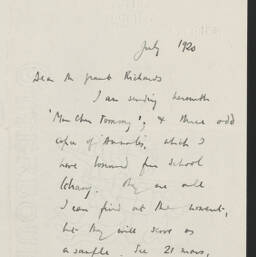 July 1920
Dear Mr Grant Richards
I am sending herewith
'Mon Cher Tommy', & three odd
copies of 'Annales', which I
have borrowed from school
library. They are all
I can find at the moment,
but they will serve as
a sample. See 21 mars,